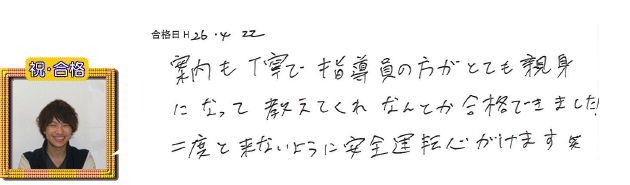 合格日 H26・4 22
祝・合格
案内も丁寧で指導員の方がとても親身
になって教えてくれなんとか合格できました!
二度と来ないように安全運転心がけます笑